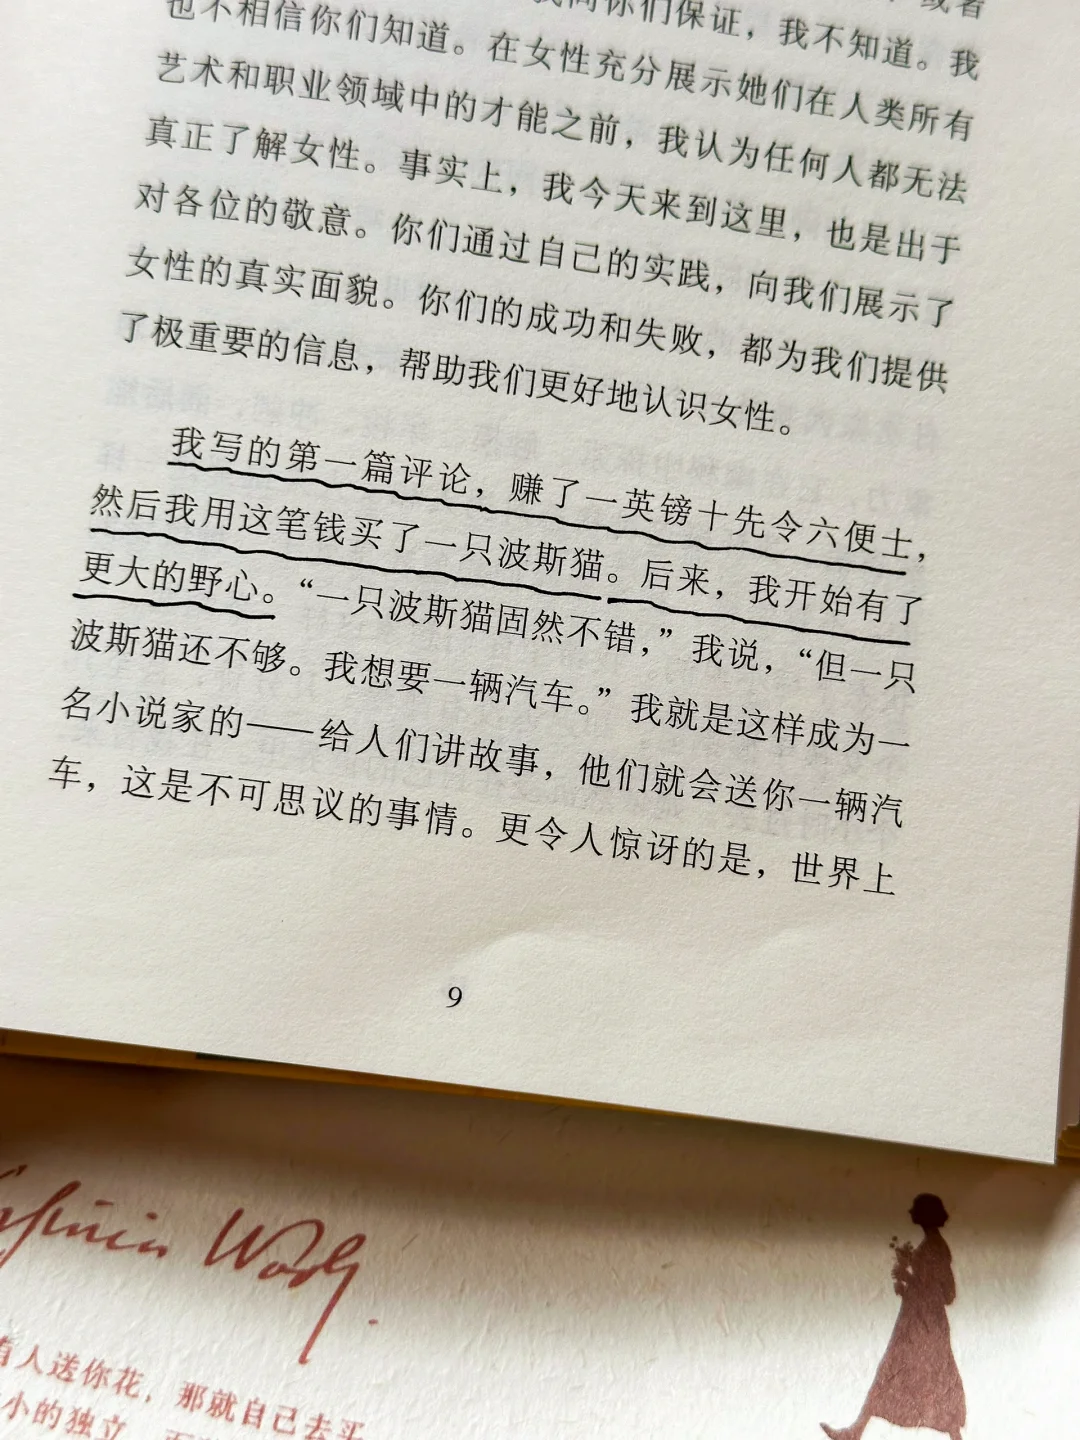 我向你们保证，我不知道。我
也不相信你们知道。在女性充分展示她们在人类所有
艺术和职业领域中的才能之前，我认为任何人都无法
真正了解女性。事实上，我今天来到这里，也是出于
对各位的敬意。你们通过自己的实践，向我们展示了
女性的真实面貌。你们的成功和失败，都为我们提供
了极重要的信息，帮助我们更好地认识女性。
我写的第一篇评论，赚了一英镑十先令六便士，
然后我用这笔钱买了一只波斯猫。后来，我开始有了
更大的野心。“一只波斯猫固然不错，”我说，“但一只
波斯猫还不够。我想要一辆汽车。”我就是这样成为一
名小说家的——给人们讲故事，他们就会送你一辆汽
车，这是不可思议的事情。更令人惊讶的是，世界上
9
Virginia Woolf
有人送你花，那就自己去买
小的独立